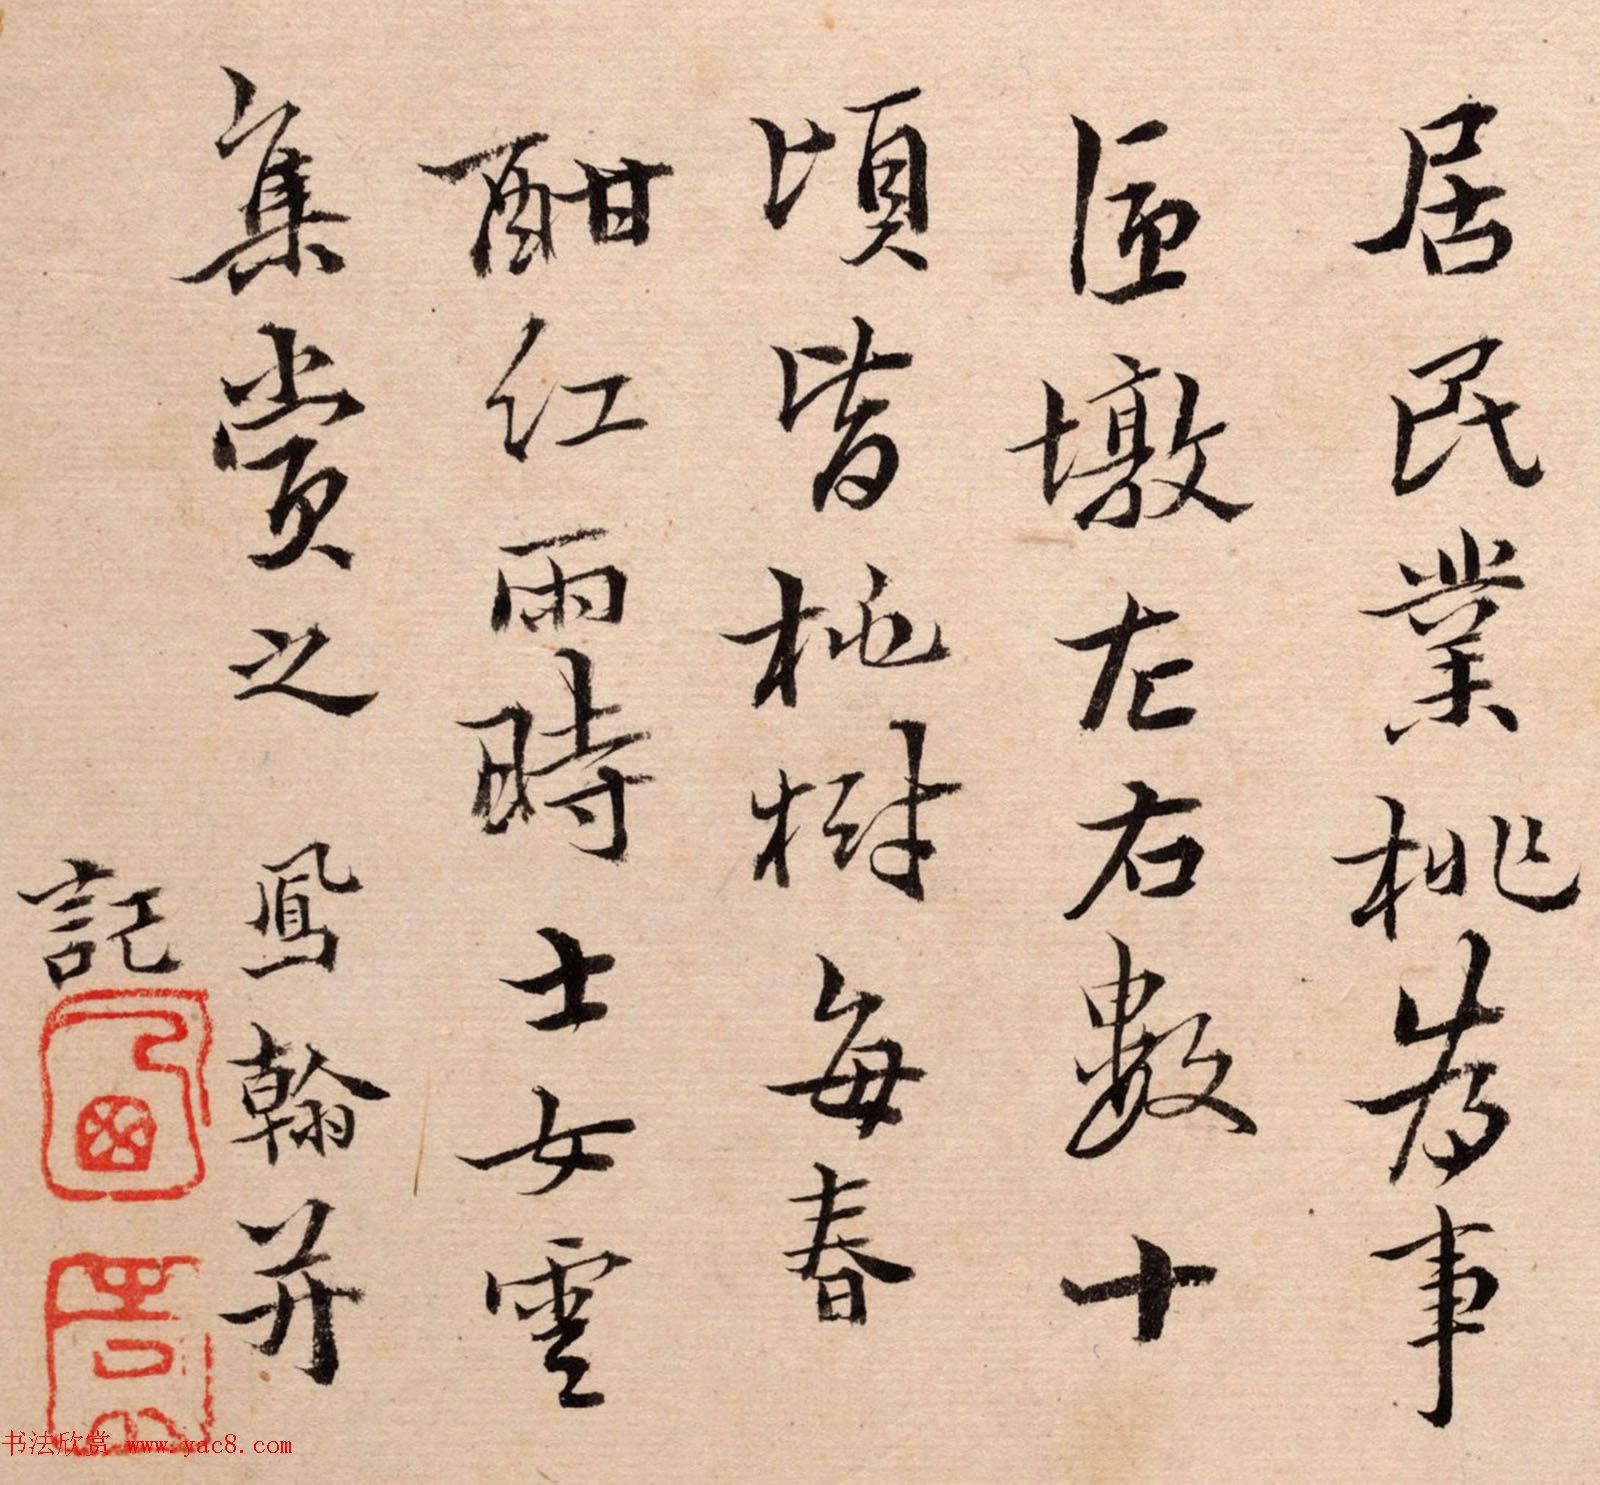 居民業桃為事
墩左右數十
頃皆桃樹每春
酣紅雨時士女雲
集賞之 鳳翰并
記
书法欣赏 www.yac8.com